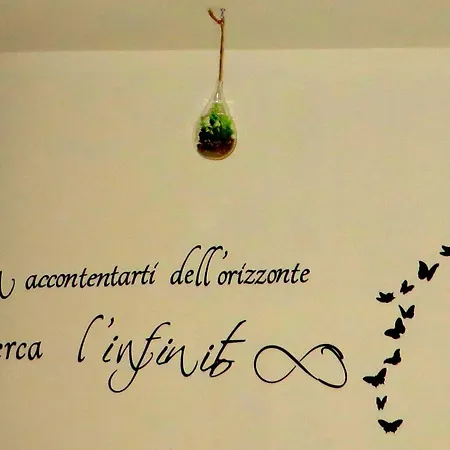 accontentarti dell'orizzonte
l'infinito